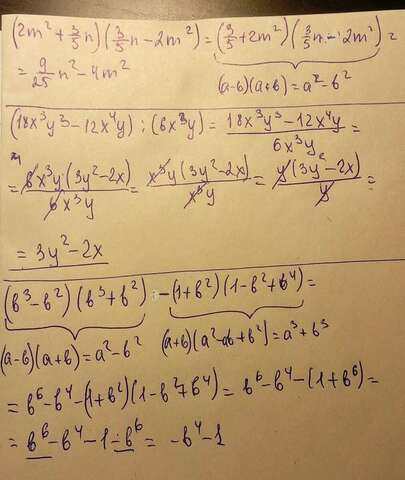 (2m² + 3/5n)(3/5n - 2m²) = (3/5 + 2m²)(3/5n - 2m²) =
= 9/25 n² - 4m²
(a-b)(a+b) = a² - b²
(18x³y³ - 12x⁴y) : (6x³y) = 18x³y³ - 12x⁴y / 6x³y =
= 6x³y(3y² - 2x) / 6x³y = x³y(3y² - 2x) / x³y = y(3y² - 2x) / y =
= 3y² - 2x
(b³ - b²)(b³ + b²) - (1 + b²)(1 - b² + b⁴) =
(a-b)(a+b) = a² - b² (a+b)(a² - ab + b²) = a³ + b³
= b⁶ - b⁴ - (1 + b²)(1 - b² + b⁴) = b⁶ - b⁴ - (1 + b⁶) =
= b⁶ - b⁴ - 1 - b⁶ = -b⁴ - 1